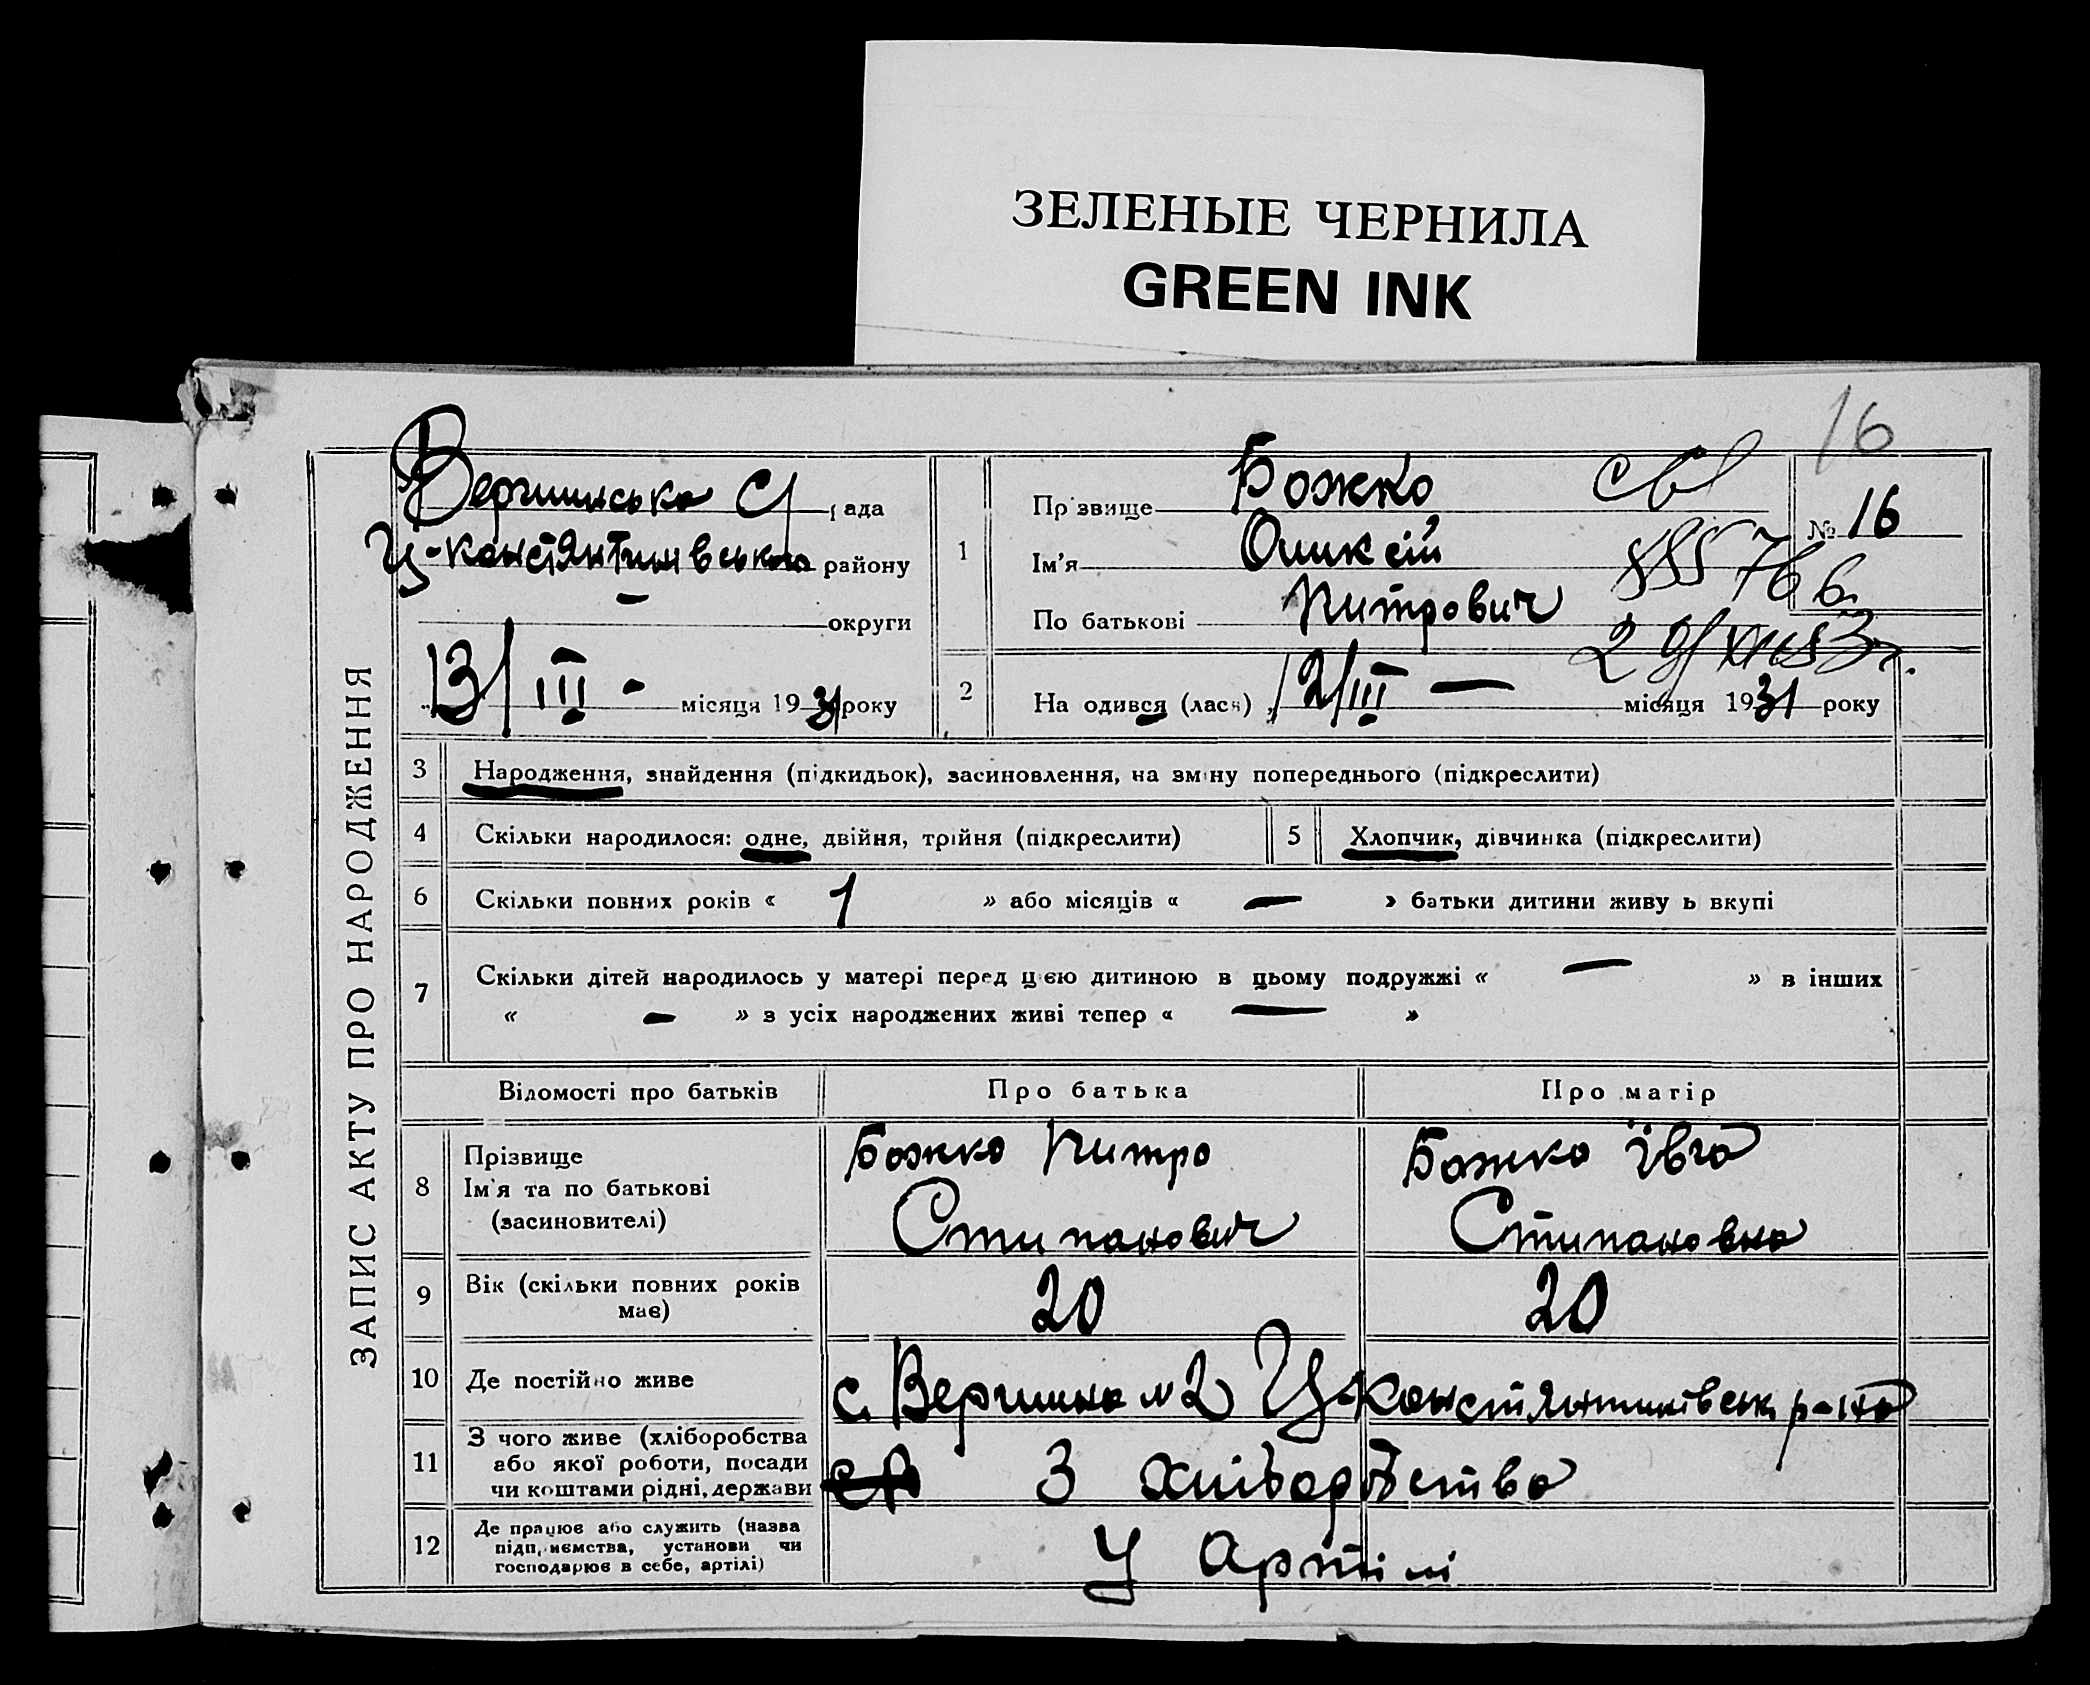 ЗЕЛЕНЫЕ ЧЕРНИЛА
GREEN INK
16
ЗАПИС АКТУ ПРО НАРОДЖЕННЯ
Вершинська с/рада
Ц-констянтинвського району
— округи
13/III - місяця 1931 року
1
Прізвище Божко
Ім'я Оликсій
По батькові Питрович
№ 16
св
76 в.
2
На одився (лася) 12/III — місяця 1931 року
3 Народження, знайдення (підкидьок), засиновлення, на зміну попереднього (підкреслити)
4 Скільки народилося: одне, двійня, трійня (підкреслити)
5 Хлопчик, дівчинка (підкреслити)
6 Скільки повних років « 1 » або місяців « — » батьки дитини живу ь вкупі
7 Скільки дітей народилось у матері перед цією дитиною в цьому подружжі « — » в інших
« — » з усіх народжених живі тепер « — »
Відомості про батьків Про батька Про матір
8 Прізвище
Ім'я та по батькові
(засиновителі)
Божко Питро
Стипанович
Божко Ївга
Стипановна
9 Вік (скільки повних років
має)
20
20
10 Де постійно живе с. Вершина №2 Ц-Констянтинівськ. р-на
11 З чого живе (хліборобства
або якої роботи, посади
чи коштами рідні, держави
З хліборобства
12 Де працює або служить (назва
підприємства, установи чи
господарює в себе, артілі)
У Артілі